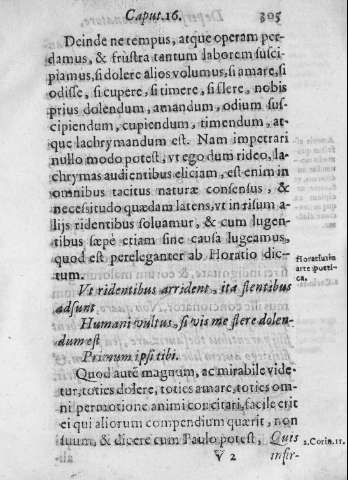 Caput. 16. 305
Deinde ne tempus, atque operam per-
damus, & frustra tantum laborem susci
piamus, si dolere alios volumus, si amare, si
odisse, si cupere, si timere, si flere, nobis
prius dolendum, amandum, odium sus-
cipiendum, cupiendum, timendum, at-
que lachrymandum est. Nam impetrari
nullo modo potest, vt ego dum rideo, la-
chrymas audientibus eliciam, est enim in
omnibus tacitus naturæ consensus, &
necessitudo quædam latens, vt in risum a-
lijs ridentibus soluamur, & cum lugen-
tibus sæpe etiam sine causa lugeamus,
quod est pereleganter ab Horatio dic-
tum.
Horatius in
arte poeti-
ca.
Vt ridentibus arrident, ita flentibus
adsunt
Humani vultus, si vis me flere dolen-
dum est
Primum ipsi tibi.
Quod autē magnum, ac mirabile vide
tur, toties dolere, toties amare, toties om-
ni permotione animi concitari, facile erit
ei qui aliorum compendium quærit, non
suum, & dicere cum Paulo potest, Quis
2. Corin. 11.
V 2 infir-